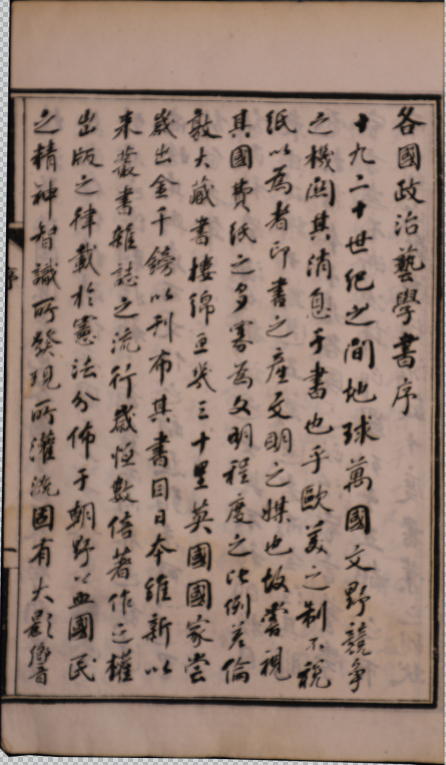 各國政治藝學書序
十九二十世紀之間地球萬國文野競爭
之機關其消息于書也乎歐美之制不稅
紙以為者印書之產文明之媒也故嘗視
其國費紙之多寡為文明程度之比例差倫
敦大藏書樓綿亘幾三十里英國國家嘗
歲出金千鎊以刊布其書目日本維新以
來叢書雜誌之流行歲恒數倍著作之權
出版之律載於憲法分佈于朝野以益國民
之精神智識所發現所灌流固有大影響
序